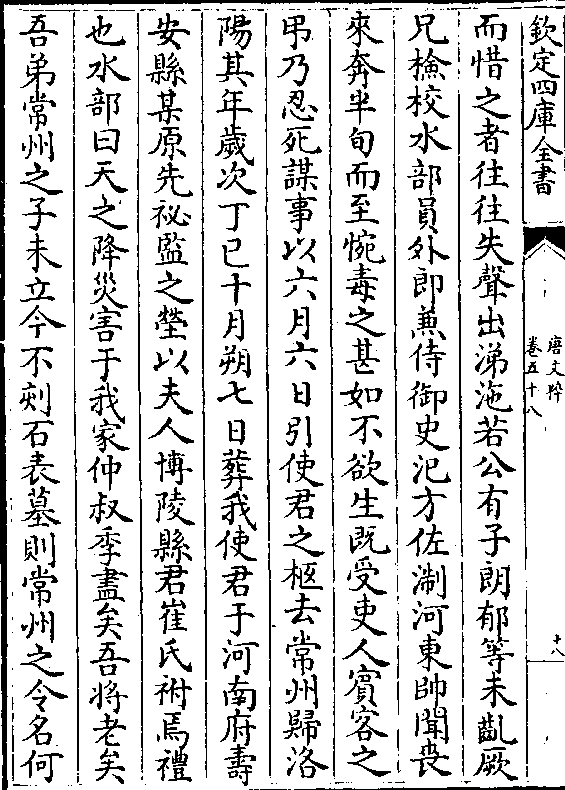 欽定四庫全書
唐文粹
卷五十八
十八
而惜之者往往失聲出涕沲若公有子朗郁等未齓厥
兄檢校水部員外郎兼侍御史汜方佐淛河東帥聞喪
來奔半旬而至惋毒之甚如不欲生既受吏人賓客之
弔乃忍死謀事以六月六日引使君之柩去常州歸洛
陽其年歲次丁巳十月朔七日葬我使君于河南府壽
安縣某原先祕監之塋以夫人博陵縣君崔氏祔焉禮
也水部曰天之降災害于我家仲叔季盡矣吾將老矣
吾弟常州之子未立今不刻石表墓則常州之令名何